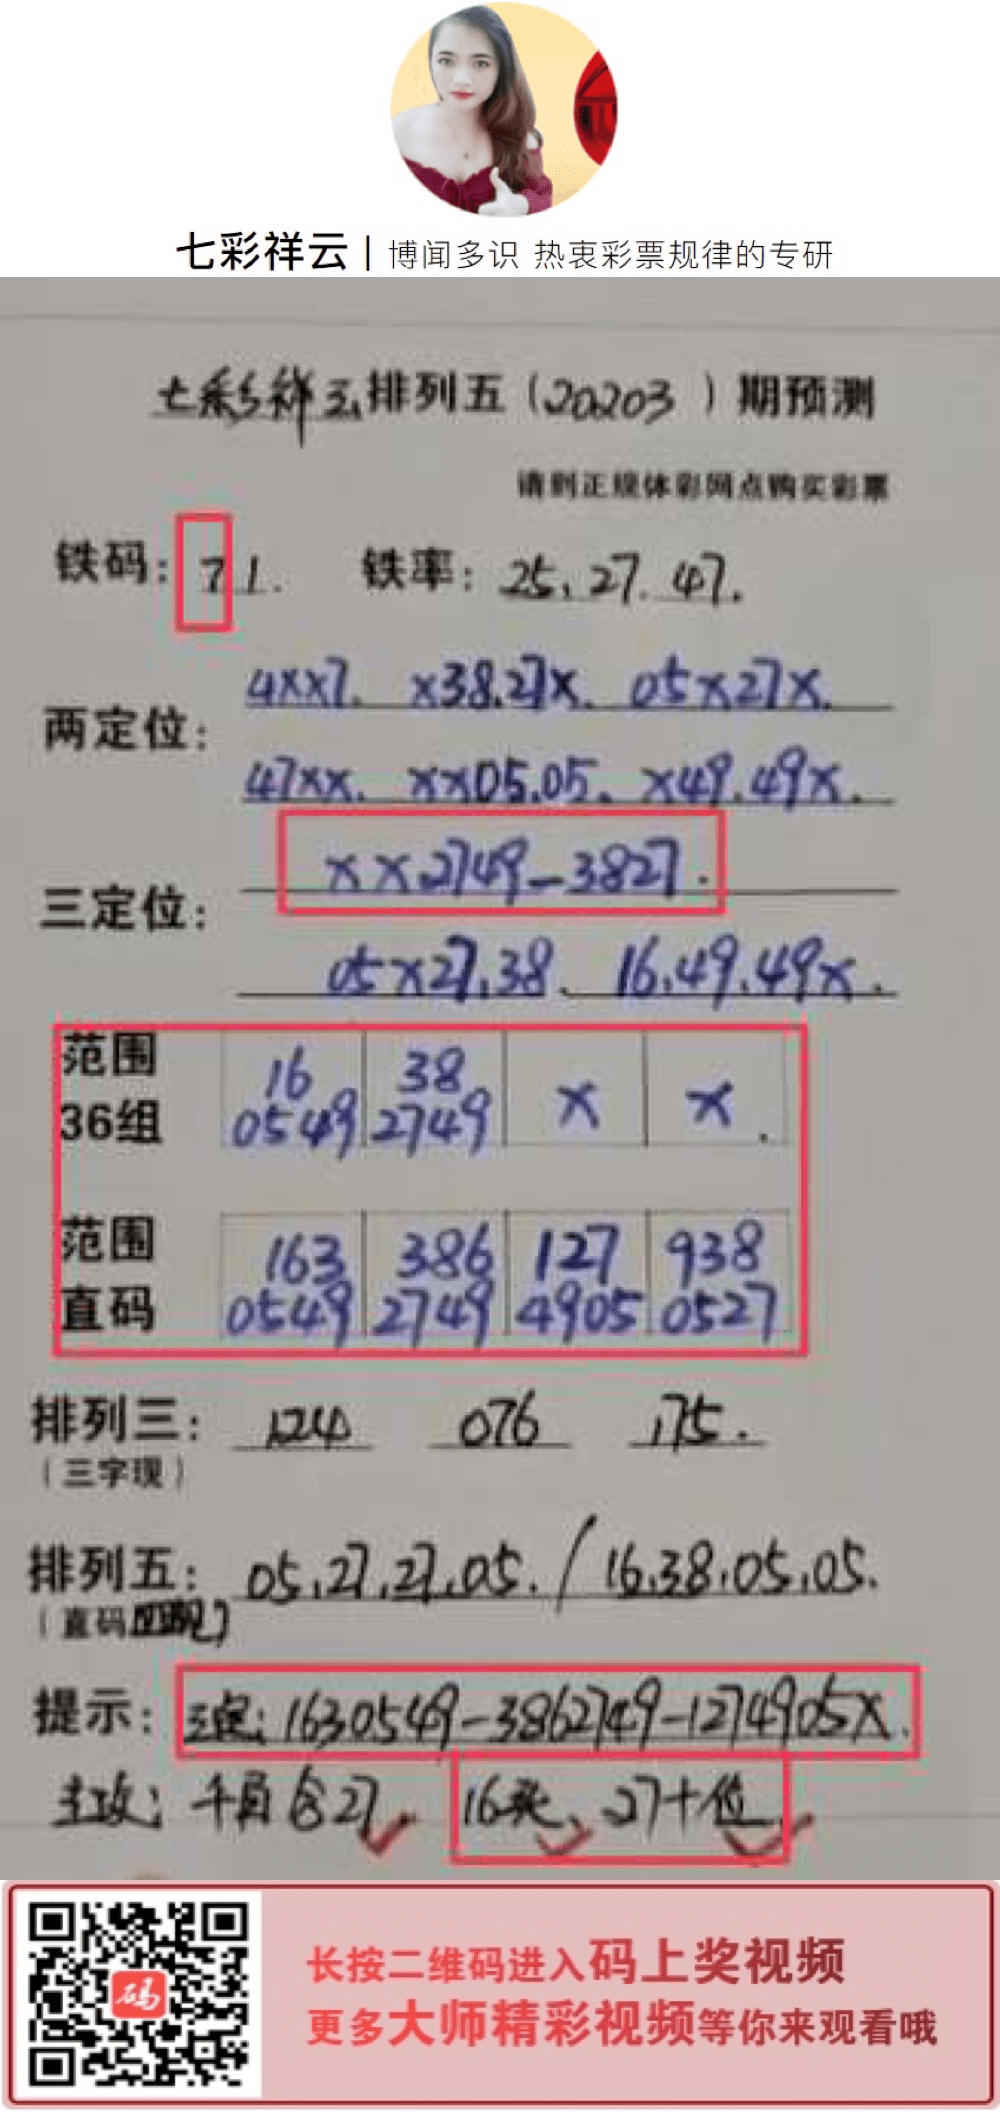 七彩祥云 | 博闻多识 热衷彩票规律的专研
七彩祥云排列五(20203)期预测
请到正规体彩网点购买彩票
铁码: 71. 铁率: 25、27. 47.
两定位: 4XX7. X38.27X. 05X27X.
47XX. XX05.05. X49.49X.
三定位: XX2749-3827.
05X27.38、16.49.49X.
范围 36组 16 0549 38 2749 X X.
范围 直码 163 0549 386 2749 127 4905 938 0527
排列三: 124 076 175.
(三字现)
排列五: 05.27.27.05. / 16.38.05.05.
(直码四现)
提示: 三定: 1630549-3862749-1274905X.
主攻: 千百合27. 16头、27十位.
码
长按二维码进入码上奖视频
更多大师精彩视频等你来观看哦